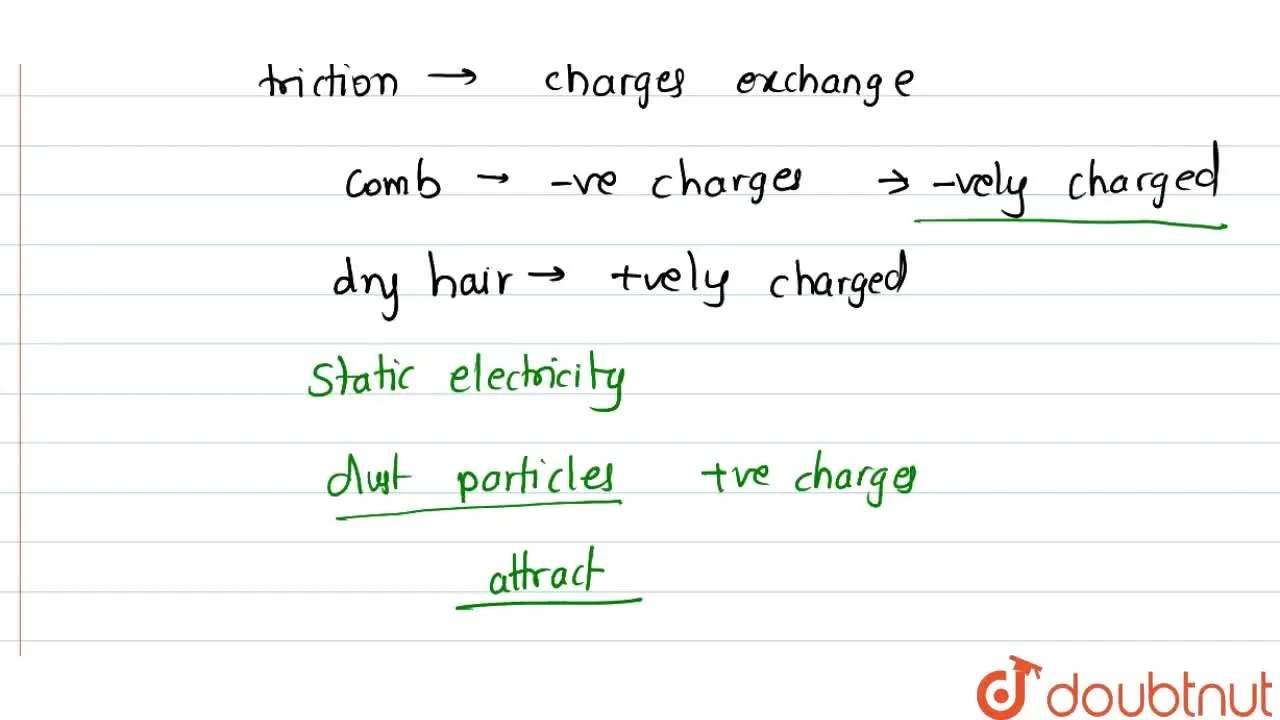 friction → charges exchange
comb → -ve charges → -vely charged
dry hair → +vely charged
Static electricity
dust particles +ve charges
attract
doubtnut